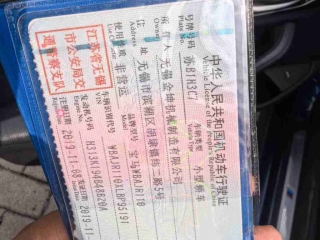 中华人民共和国机动车行驶证
Vehicle License of the People's Republic of China
号牌号码 苏B1M3C7
Plate No.
车辆类型 小型轿车
Vehicle Type
所有人 无锡金坤机械制造有限公司
Owner
住址 无锡市滨湖区胡埭镇
使用性质 非营运
Use Character
品牌型号 宝马WBAJR110
江苏省无锡
市公安局交
通警察支队
车辆识别代号 WBAJR110XLBP95191
发动机号码 H313K194B48B20A
注册日期 2019-11-08
发证日期 2019-11